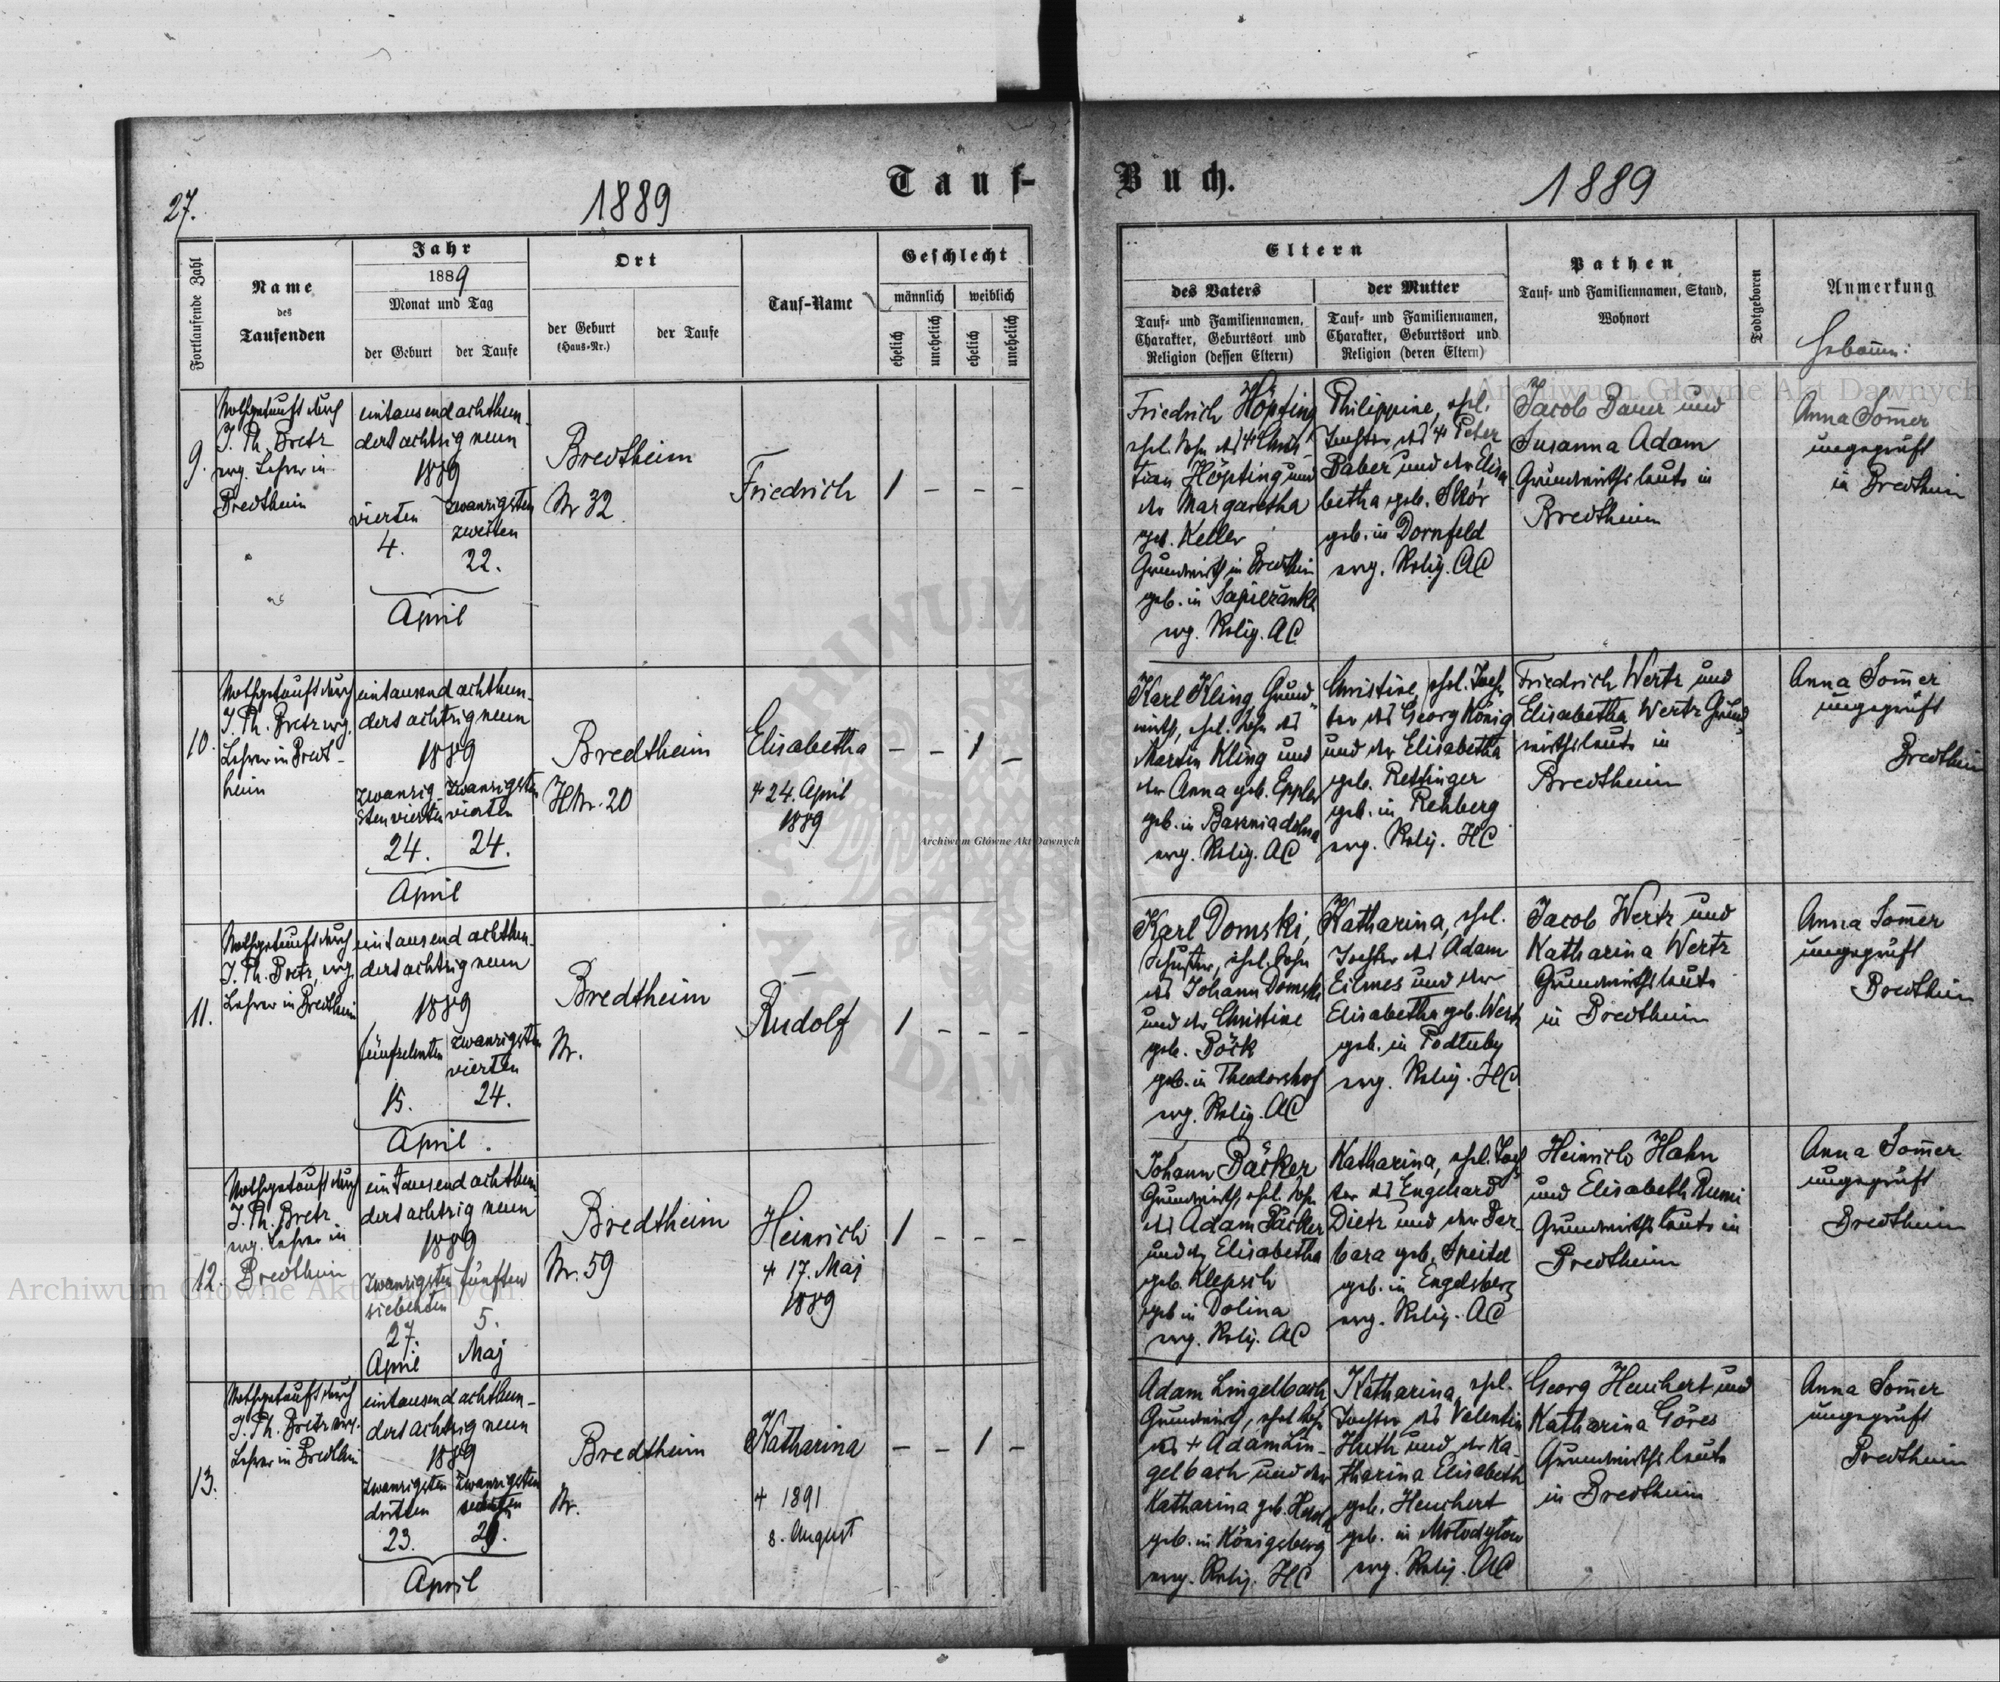 27.
1889
Tauf-
Buch.
1889
Fortlaufende Zahl
Name
des
Taufenden
Jahr
1889
Monat und Tag
der Geburt
der Taufe
Ort
der Geburt
(Haus-Nr.)
der Taufe
Tauf-Name
Geschlecht
männlich
weiblich
ehelich
unehelich
ehelich
unehelich
Eltern
des Vaters
Tauf- und Familiennamen,
Charakter, Geburtsort und
Religion (dessen Eltern)
der Mutter
Tauf- und Familiennamen,
Charakter, Geburtsort und
Religion (deren Eltern)
Pathen
Tauf- und Familiennamen, Stand,
Wohnort
Todtgeboren
Anmerkung
Hebamme:
9.
Nothgetauft durch
J. Ph. Bretz
evg. Lehrer in
Bredtheim
eintausend achthun-
dert achtzig neun
1889
vierten
4.
zwanzigsten
zweiten
22.
April
Bredtheim
Nr 32
Friedrich
1 – – –
Friedrich Höpfing
ehel. Sohn des + Chris-
tian Höpfing und
der Margaretha
geb. Keller
Grundwirth in Bredtheim
geb. in Sapiezanka
evg. Relig. AC
Philippine, ehel.
Tochter des + Peter
Daber und der Elisa
betha geb.
geb. in Dornfeld
evg. Relig. AC
Jacob Bauer und
Susanna Adam
Grundwirthsleute in
Bredtheim
Anna Som̄er
ungeprüft
in Bredtheim
10.
Nothgetauft durch
J. Ph. Bretz evg.
Lehrer in Bredt-
heim
eintausend achthun-
dert achtzig neun
1889
zwanzig-
sten vierten
24.
zwanzigsten
vierten
24.
April
Bredtheim
HNr. 20
Elisabetha
+ 24. April
1889
– – 1 –
Karl Kling, Grund-
wirth, ehel. Sohn des
Martin Kling und
der Anna geb. Eppler
geb. in
evg. Relig. AC
Christine, ehel. Toch-
ter des Georg König
und der Elisabetha
geb. Rettinger
geb. in Rehberg
evg. Relig. HC
Friedrich Wertz und
Elisabetha Wertz Grund
wirthsleute in
Bredtheim
Anna Som̄er
ungeprüft
Bredtheim
11.
Nothgetauft durch
J. Ph. Bretz, evg.
Lehrer in Bredtheim
eintausend achthun-
dert achtzig neun
1889
fünfzehnten
15.
zwanzigsten
vierten
24.
April.
Bredtheim
Nr.
Rudolf
1 – – –
Karl Domski,
Schuster, ehel. Sohn
des Johann Domski
und der Christine
geb. Böck
geb. in Theodorshof
evg. Relig. AC
Katharina, ehel.
Tochter des Adam
Eilmes und der
Elisabetha geb. Wertz
geb. in Podluby
evg. Relig. HC
Jacob Wertz und
Katharina Wertz
Grundwirthsleute
in Bredtheim
Anna Som̄er
ungeprüft
Bredtheim
12.
Nothgetauft durch
J. Ph. Bretz
evg. Lehrer in
Bredtheim
eintausend achthun-
dert achtzig neun
1889
zwanzigsten
siebenten
27.
April
fünften
5.
Maj
Bredtheim
Nr. 59
Heinrich
+ 17. Maj
1889
1 – – –
Johann Bäcker
Grundwirth, ehel. Sohn
des Adam Bäcker
und der Elisabetha
geb. Klepsch
geb in Dolina
evg. Relig. AC
Katharina, ehel. Toch
ter des Engehard
Dietz und der Bar-
bara geb. Speitel
geb. in Engelsberg
evg. Relig. AC
Heinrich Hahn
und Elisabeth
Grundwirthsleute in
Bredtheim
Anna Som̄er
ungeprüft
Bredtheim
13.
Nothgetauft durch
J. Ph. Bretz evg.
Lehrer in Bredtheim
eintausend achthun-
dert achtzig neun
1889
zwanzigsten
dritten
23.
zwanzigsten
April
Bredtheim
Nr.
Katharina
+ 1891
8. August
– – 1 –
Adam Lingelbach
Grundwirth, ehel Sohn
des + Adam Lin-
gelbach und der
Katharina geb.
geb. in Königsberg
evg. Relig. HC
Katharina, ehel.
Tochter des Valentin
Huth und der Ka-
tharina Elisabeth
geb. Heuchert
geb. in Mołodyłow
evg. Relig. AC
Georg Heuchert und
Katharina Göres
Grundwirthsleute
in Bredtheim
Anna Som̄er
ungeprüft
Bredtheim
Archiwum Główne Akt Dawnych
Archiwum Główne Akt Dawnych
Archiwum Główne Akt Dawnych